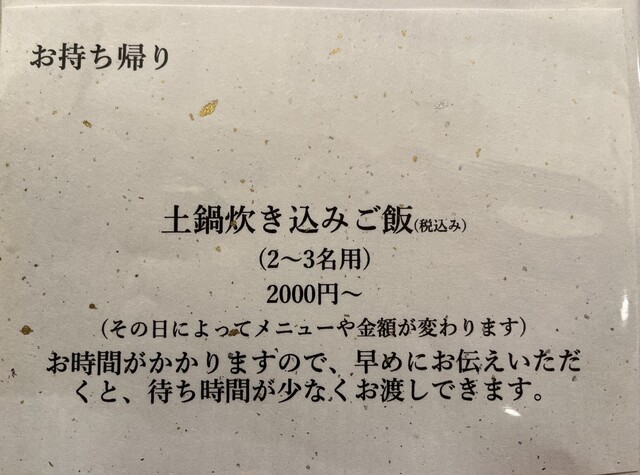 お持ち帰り
土鍋炊き込みご飯(税込み)
（2～3名用）
2000円～
（その日によってメニューや金額が変わります）
お時間がかかりますので、早めにお伝えいただ
くと、待ち時間が少なくお渡しできます。